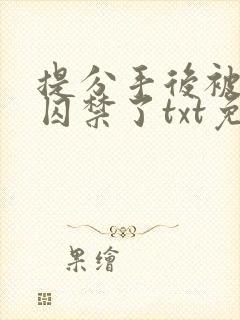 提分手後被
囚禁了txt免
果繪